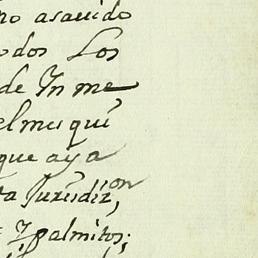 no asauido
odos Los
de In me
elmes qui
que aya
ta Jurisdizion,
7 palmitos;